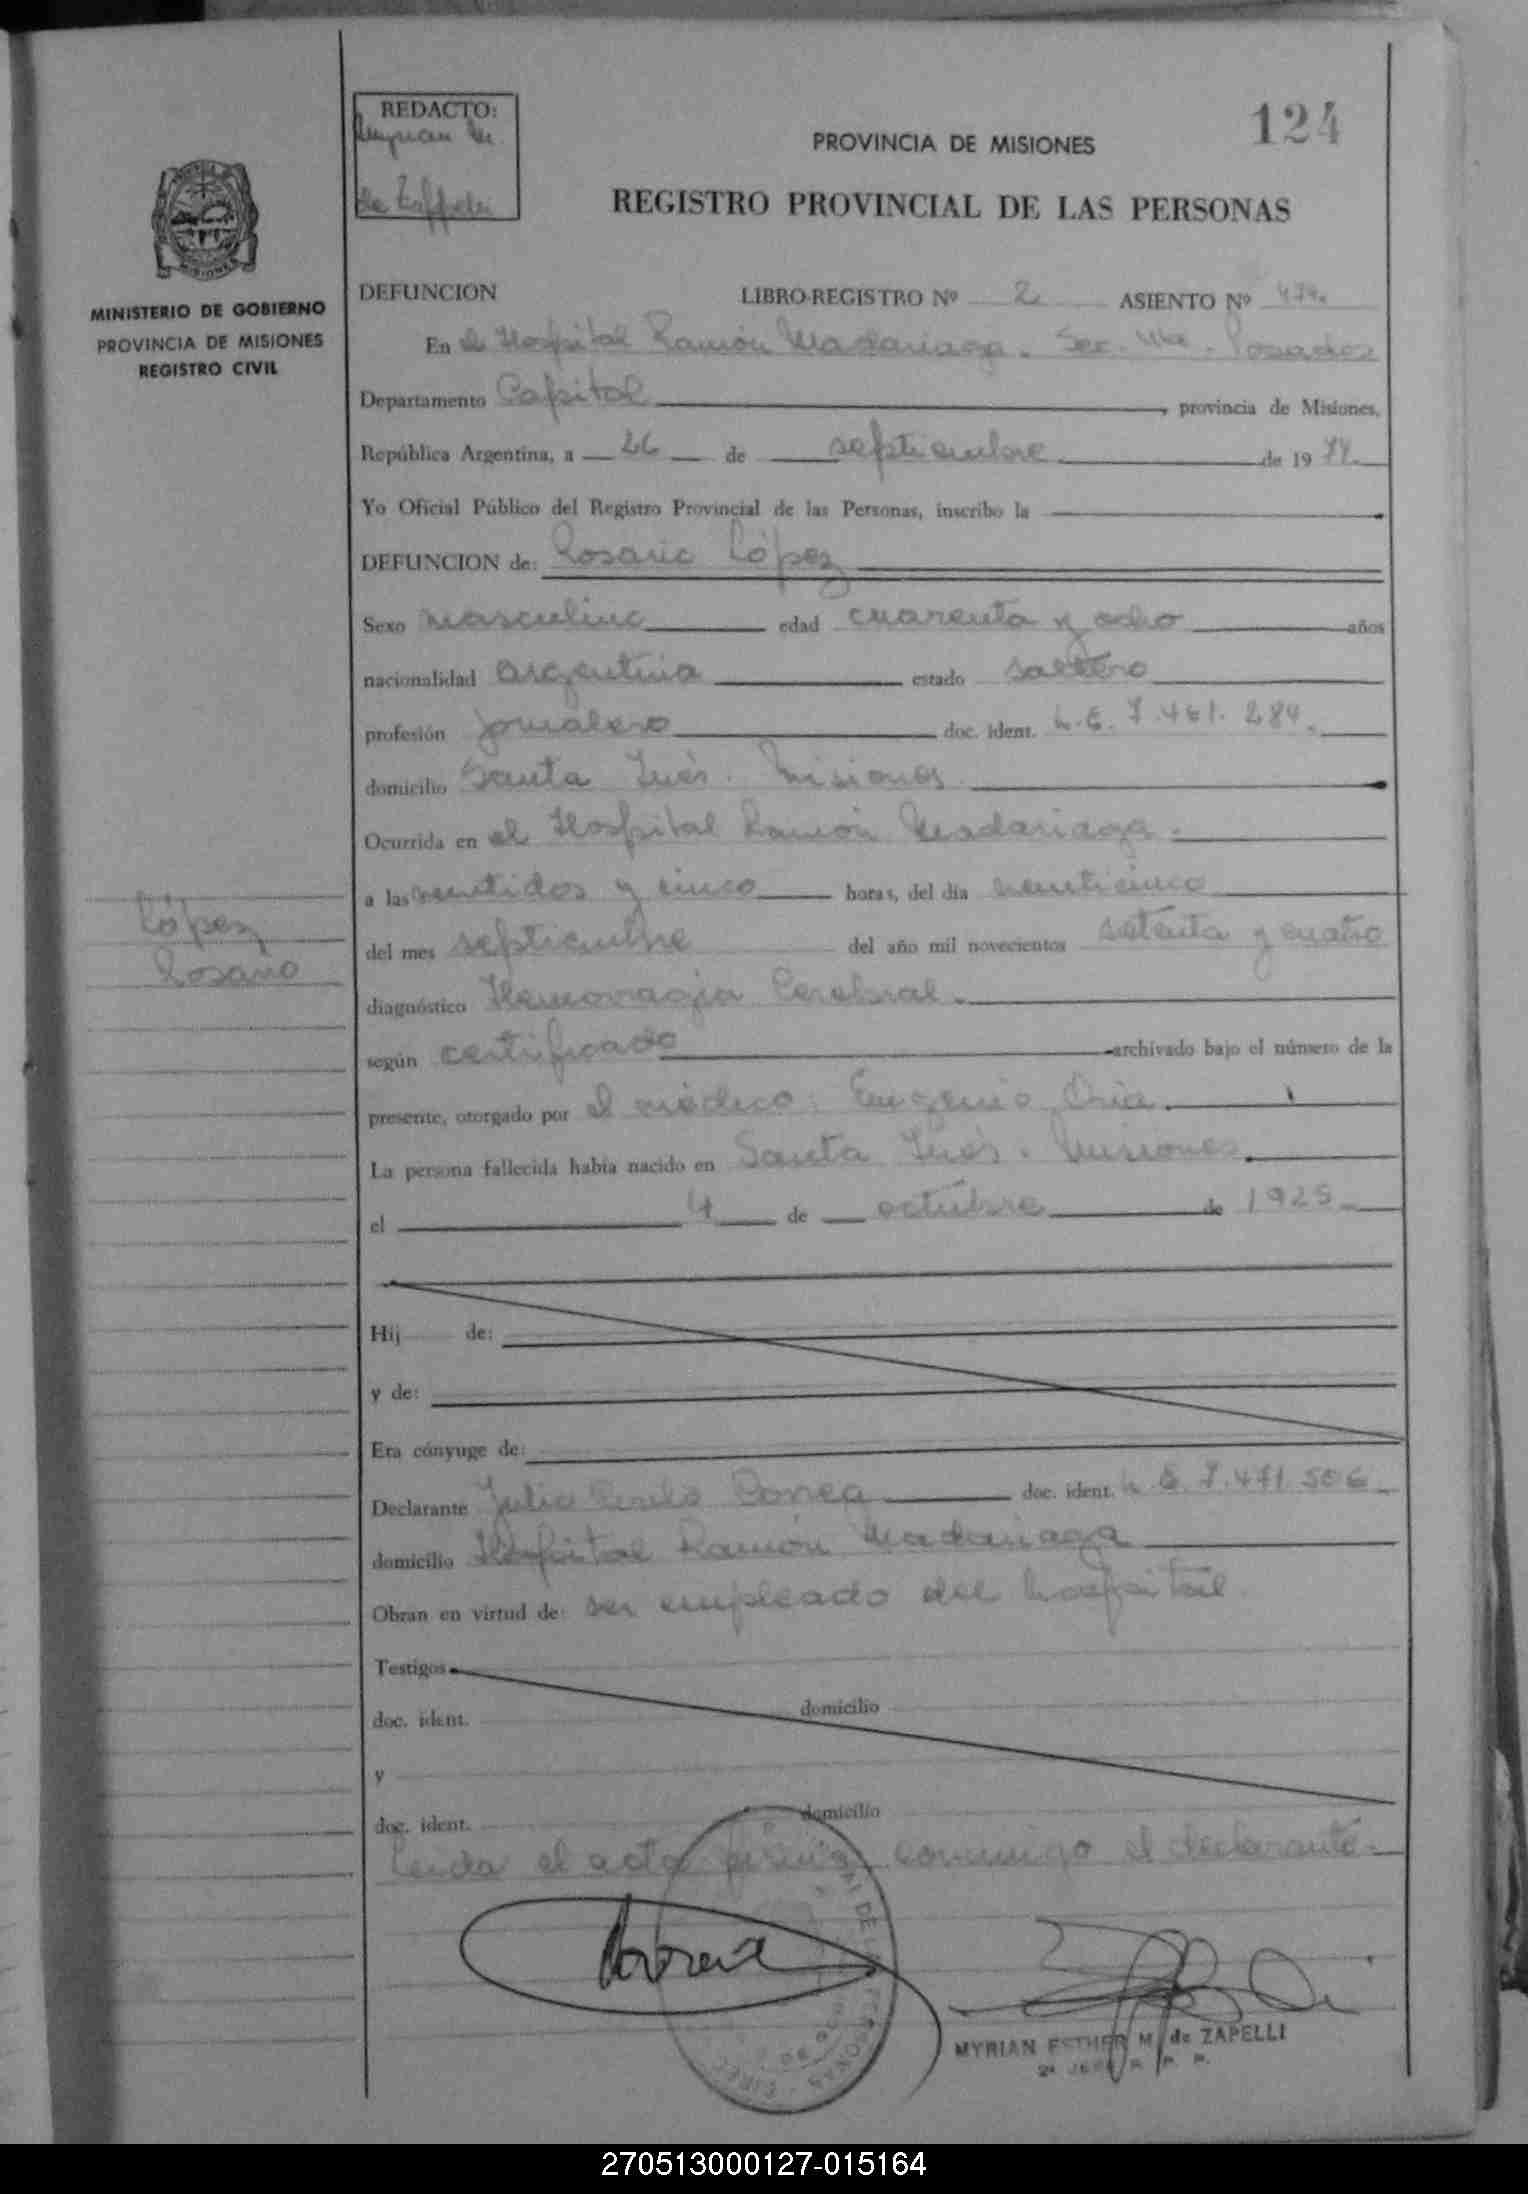 REDACTO:
Myrian M.
de Zappelli
124
PROVINCIA DE MISIONES
REGISTRO PROVINCIAL DE LAS PERSONAS
MINISTERIO DE GOBIERNO
PROVINCIA DE MISIONES
REGISTRO CIVIL
DEFUNCION LIBRO-REGISTRO Nº 2 ASIENTO Nº 474
En el Hospital Ramón Madariaga. Sec. Posadas
Departamento Capital, provincia de Misiones,
República Argentina, a 26 de septiembre de 1974
Yo Oficial Público del Registro Provincial de las Personas, inscribo la
DEFUNCION de: Rosario López
Sexo masculino edad cuarenta y ocho años
nacionalidad argentina estado soltero
profesión jornalero doc. ident. L.E. 7.461.284.
domicilio Santa Inés. Misiones
Ocurrida en el Hospital Ramón Madariaga.
a las veintidos y cinco horas, del día veinticinco
López
Rosario
del mes septiembre del año mil novecientos setenta y cuatro
diagnóstico Hemorragia Cerebral.
según certificado archivado bajo el número de la
presente, otorgado por el médico: Eugenio Oria.
La persona fallecida había nacido en Santa Inés. Misiones.
el 4 de octubre de 1925
Hij de:
y de:
Era cónyuge de:
Declarante Julio Correa doc. ident. L.E. 7.471.506
domicilio Hospital Ramón Madariaga
Obran en virtud de: ser empleado del hospital
Testigos
doc. ident. domicilio
y
doc. ident. domicilio
Leída el acta firma conmigo el declarante.
MYRIAN ESTHER M. de ZAPELLI
270513000127-015164